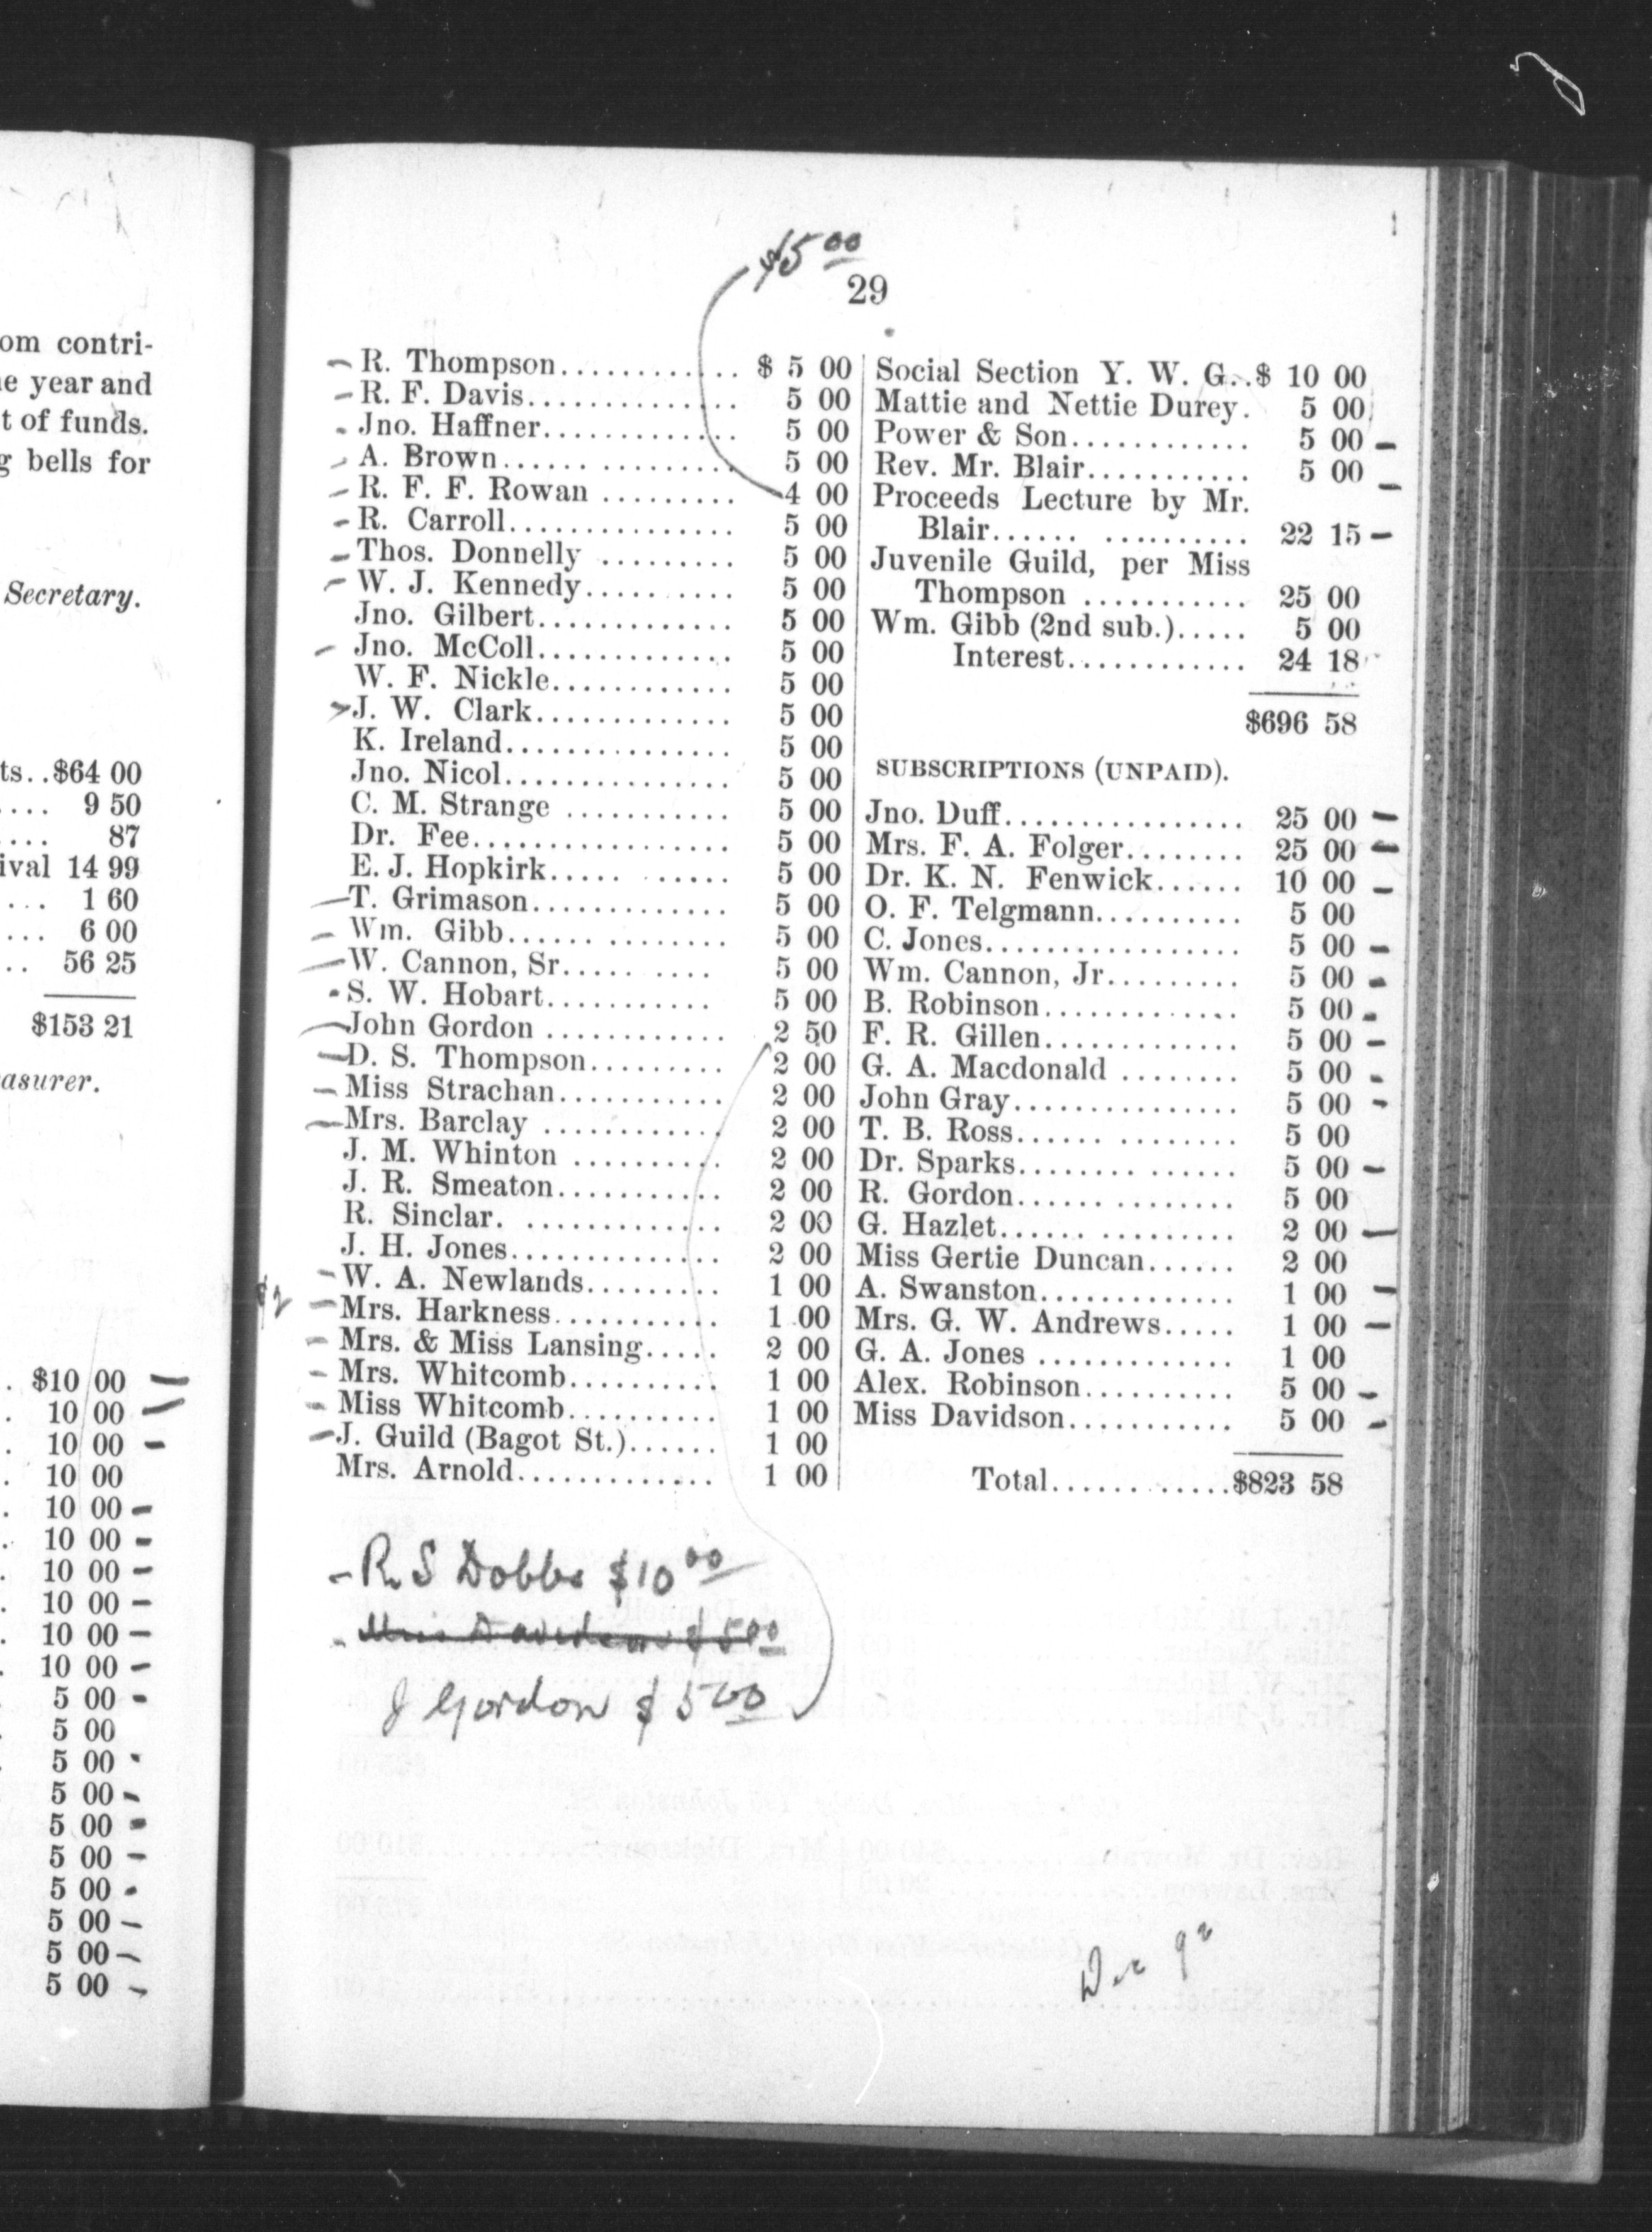 om contri-
e year and
t of funds.
g bells for
Secretary.
ts..$64 00
.... 9 50
.... 87
ival 14 99
... 1 60
... 6 00
.. 56 25
$153 21
asurer.
. $10 00 -
. 10 00 -
. 10 00 -
. 10 00
. 10 00 -
. 10 00 -
. 10 00 -
. 10 00 -
. 10 00 -
. 10 00 -
. 5 00 -
. 5 00
5 00 -
5 00 -
5 00 -
5 00 -
5 00 -
5 00 -
5 00 -
5 00 -
$5 00
29
- R. Thompson............ $ 5 00
- R. F. Davis.............. 5 00
- Jno. Haffner............. 5 00
- A. Brown................ 5 00
- R. F. F. Rowan ......... 4 00
- R. Carroll............... 5 00
- Thos. Donnelly ......... 5 00
- W. J. Kennedy.......... 5 00
Jno. Gilbert............. 5 00
- Jno. McColl............. 5 00
W. F. Nickle............ 5 00
J. W. Clark............. 5 00
K. Ireland............... 5 00
Jno. Nicol............... 5 00
C. M. Strange ........... 5 00
Dr. Fee.................. 5 00
E. J. Hopkirk..... ...... 5 00
- T. Grimason............. 5 00
- Wm. Gibb...... ........ 5 00
- W. Cannon, Sr.......... 5 00
- S. W. Hobart........... 5 00
- John Gordon ............ 2 50
- D. S. Thompson......... 2 00
- Miss Strachan........... 2 00
- Mrs. Barclay ............ 2 00
J. M. Whinton .......... 2 00
J. R. Smeaton........... 2 00
R. Sinclar. ............. 2 00
J. H. Jones.............. 2 00
- W. A. Newlands......... 1 00
$2 - Mrs. Harkness........... 1 00
- Mrs. & Miss Lansing..... 2 00
- Mrs. Whitcomb.......... 1 00
- Miss Whitcomb.......... 1 00
- J. Guild (Bagot St.)...... 1 00
Mrs. Arnold............. 1 00
Social Section Y. W. G..$ 10 00
Mattie and Nettie Durey. 5 00
Power & Son............ 5 00 -
Rev. Mr. Blair........... 5 00 -
Proceeds Lecture by Mr.
Blair...... .......... 22 15 -
Juvenile Guild, per Miss
Thompson ........... 25 00
Wm. Gibb (2nd sub.)..... 5 00
Interest............ 24 18
$696 58
SUBSCRIPTIONS (UNPAID).
Jno. Duff................. 25 00 -
Mrs. F. A. Folger........ 25 00 -
Dr. K. N. Fenwick...... 10 00 -
O. F. Telgmann.......... 5 00
C. Jones.................. 5 00 -
Wm. Cannon, Jr......... 5 00 -
B. Robinson.............. 5 00 -
F. R. Gillen.............. 5 00 -
G. A. Macdonald ........ 5 00 -
John Gray................ 5 00 -
T. B. Ross...... ........ 5 00
Dr. Sparks......... ...... 5 00 -
R. Gordon................ 5 00
G. Hazlet...... ......... 2 00 -
Miss Gertie Duncan...... 2 00
A. Swanston.............. 1 00 -
Mrs. G. W. Andrews..... 1 00 -
G. A. Jones .............. 1 00
Alex. Robinson........... 5 00 -
Miss Davidson............ 5 00 -
Total.............$823 58
- R. S Dobbs $10 00
- Miss Davidson $5 00
J Gordon $5 00
Dec 92